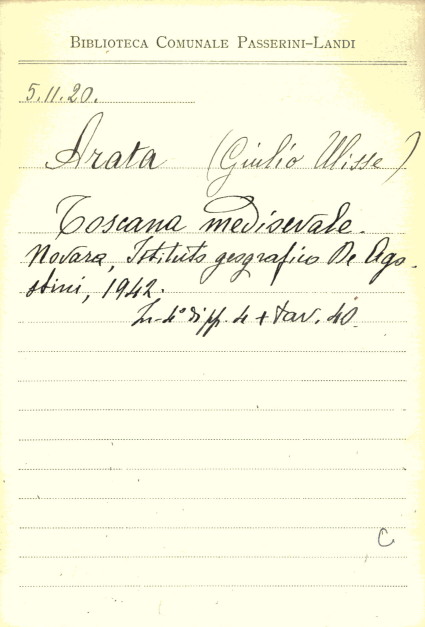 BIBLIOTECA COMUNALE PASSERINI-LANDI
5.11.20.
Arata (Giulio Ulisse)
Toscana medioevale.
Novara, Istituto geografico De Ago-
stini, 1942.
In-4° di pp. 4 + tav. 40.
C